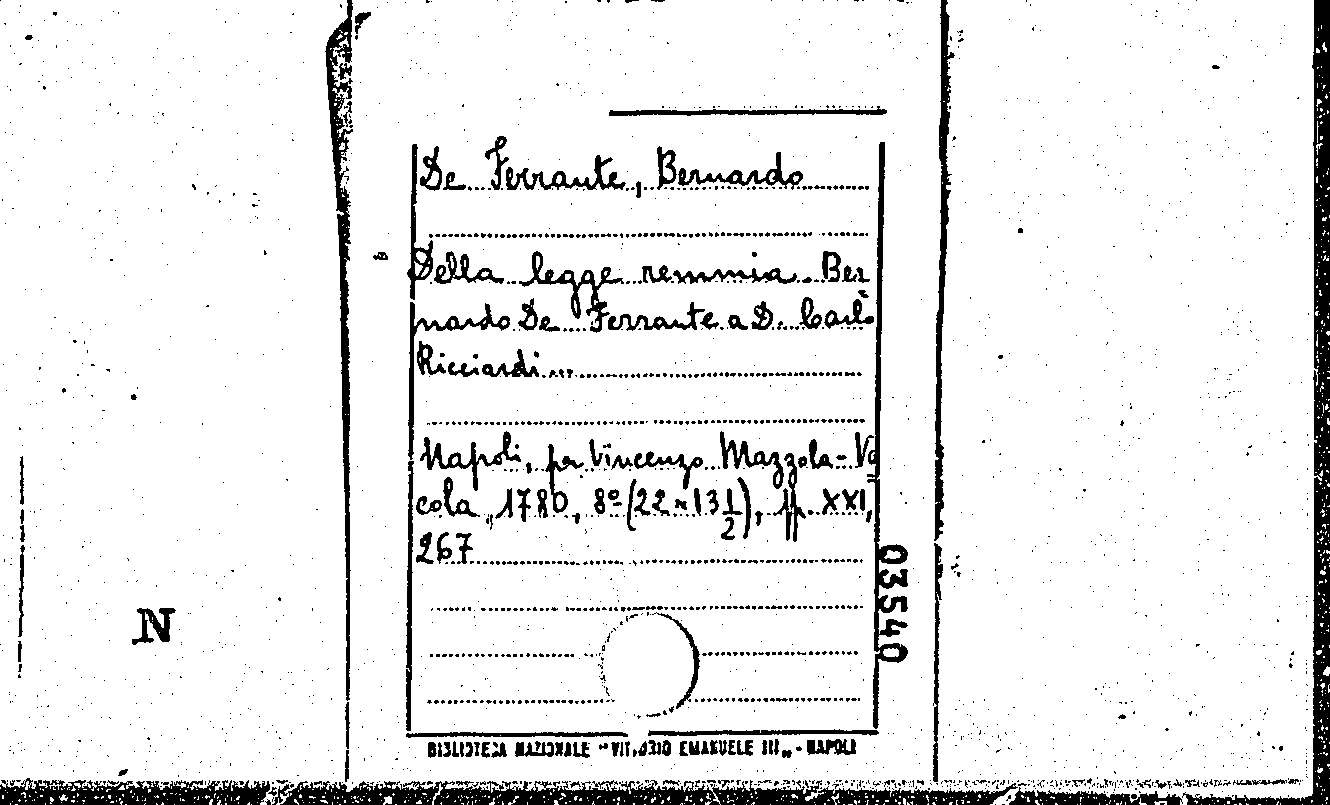 De Ferrante, Bernardo
Della legge remmia. Ber
nardo De Ferrante a D. Carlo
Ricciardi...
Napoli, per Vincenzo Mazzola-Vo
cola, 1780, 8º (22×13 1/2), pp. XXI,
267
03540
N
BIBLIOTECA NAZIONALE "VITTORIO EMANUELE III" - NAPOLI